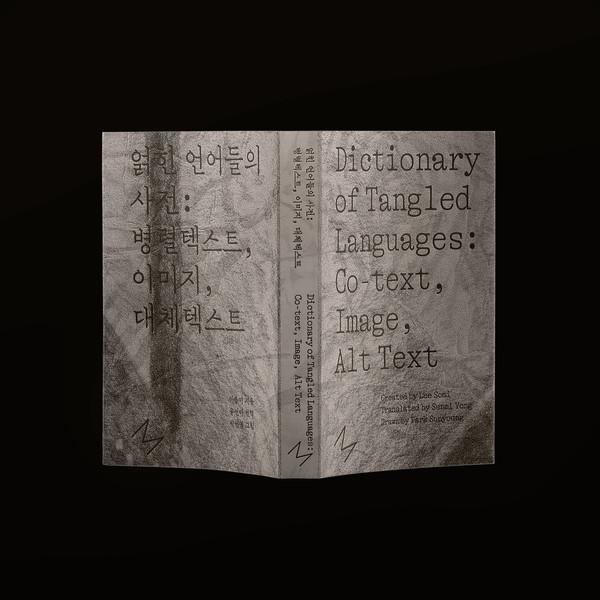 얽힌 언어들의
사전:
병렬텍스트,
이미지,
대체텍스트
얽힌 언어들의 사전:
병렬텍스트, 이미지, 대체텍스트
Dictionary of Tangled Languages:
Co-text, Image, Alt Text
Dictionary
of Tangled
Languages:
Co-text,
Image,
Alt Text
Created by Lee Somi
Translated by Sunni Yong
Drawn by Park Sunyoung